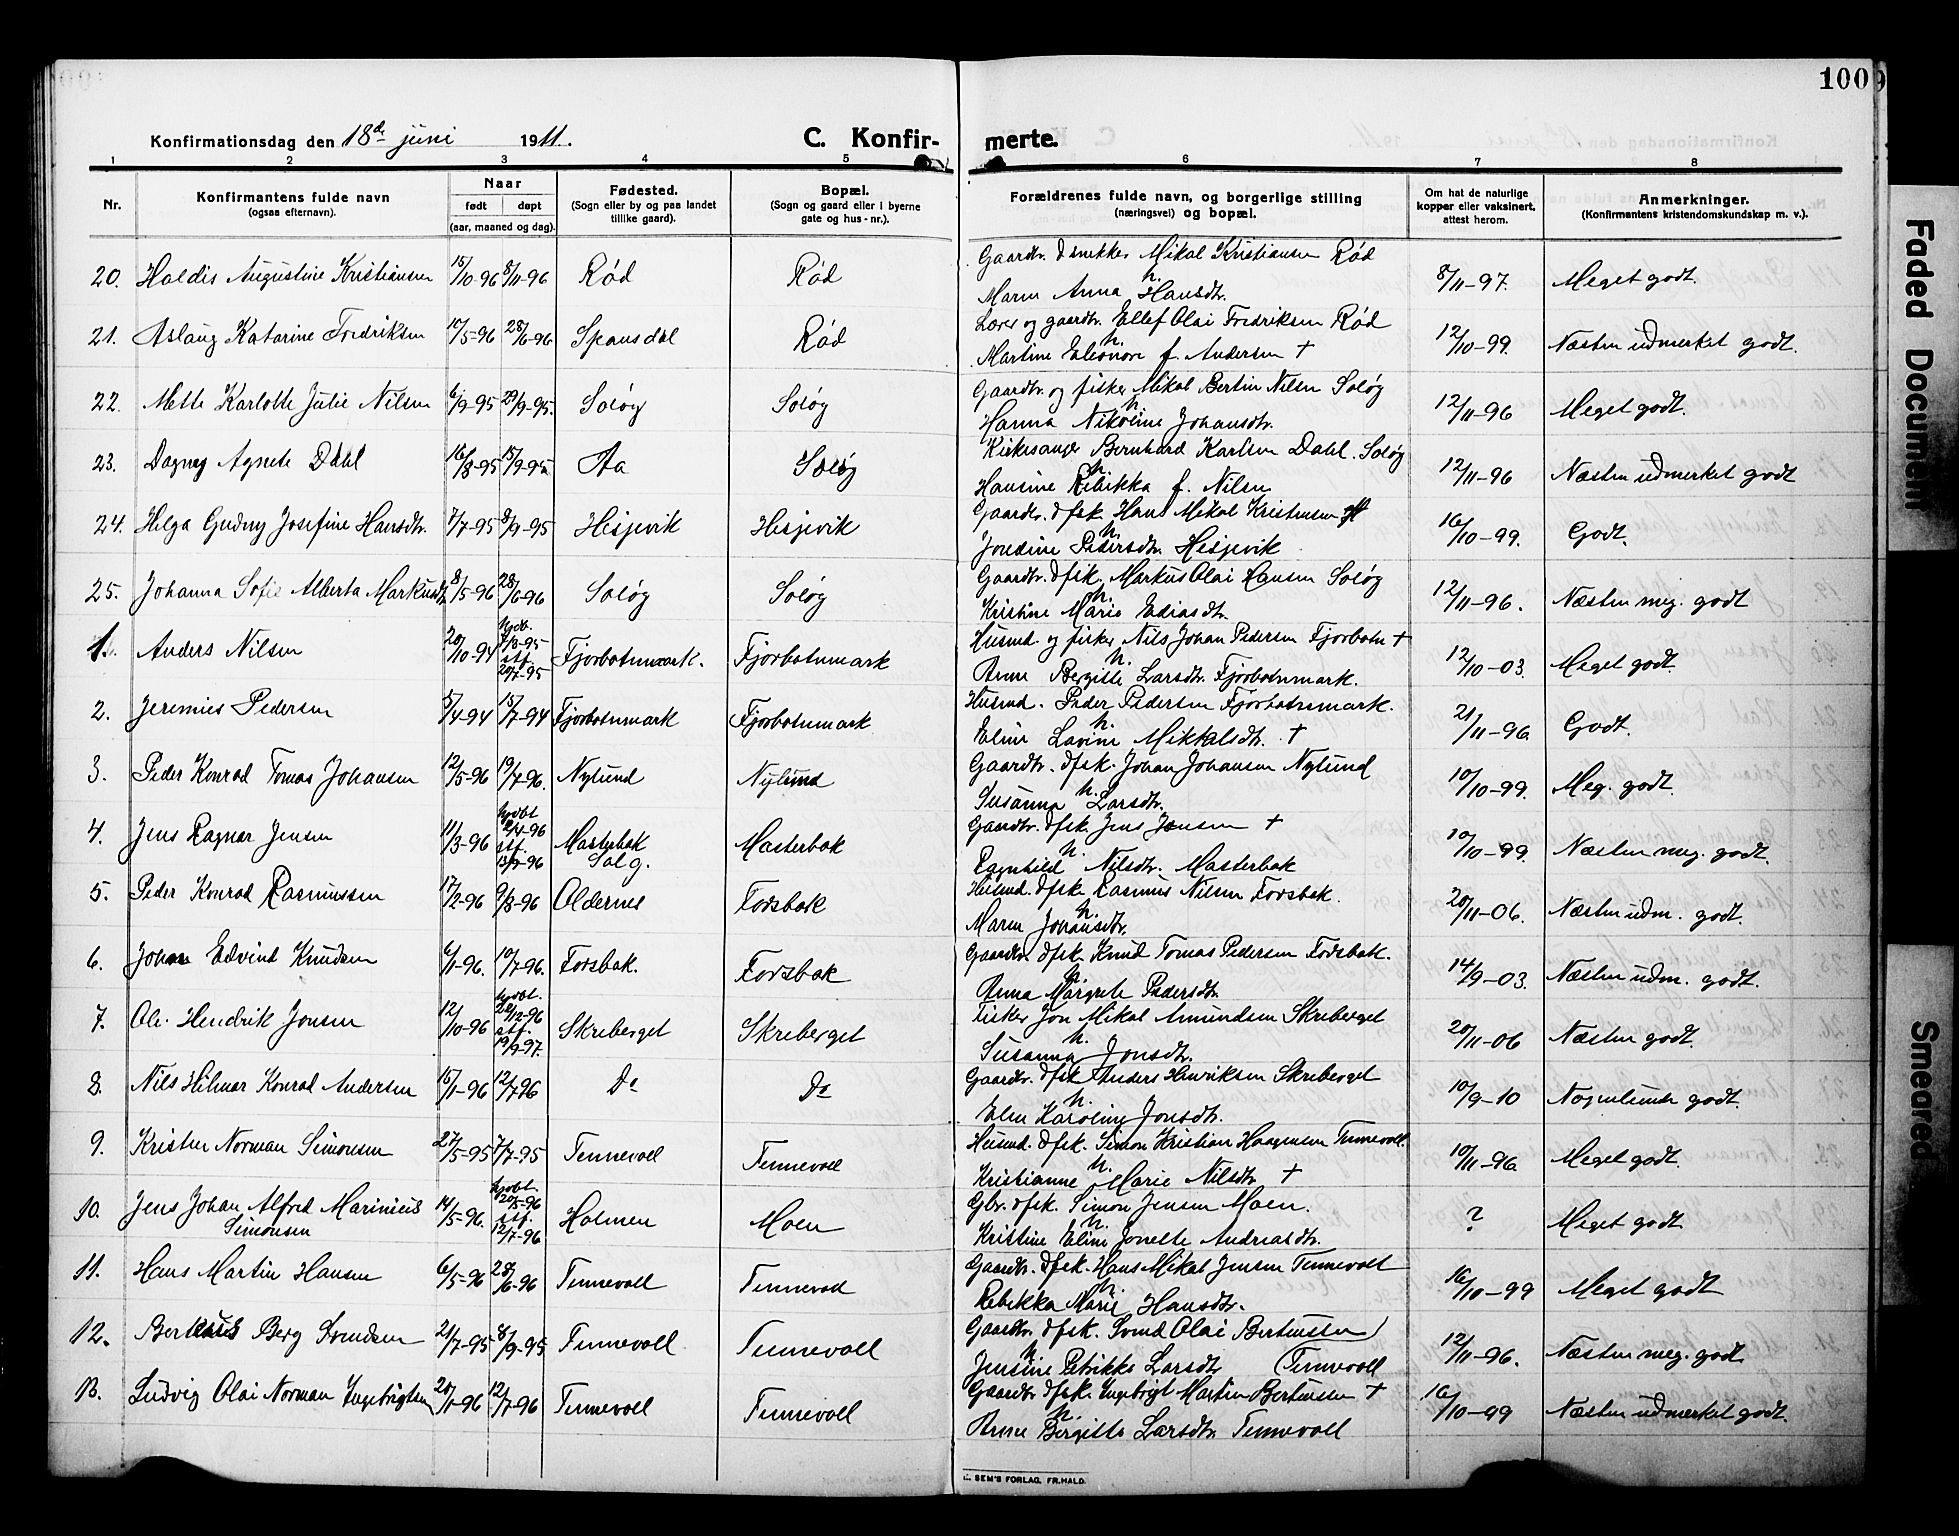 100
Konfirmationsdag den 18de juni 1911.
C. Konfir-
merte.
1 2 3 4 5 6 7 8
Nr.
Konfirmantens fulde navn
(ogsaa efternavn).
Naar
født døpt
(aar, maaned og dag).
Fødested.
(Sogn eller by og paa landet
tillike gaard).
Bopæl.
(Sogn og gaard eller i byerne
gate og hus-nr.).
Forældrenes fulde navn, og borgerlige stilling
(næringsvei) og bopæl.
Om hat de naturlige
kopper eller vaksinert,
attest herom.
Anmerkninger.
(Konfirmantens kristendomskundskap m. v.).
20. Haldis Augustine Kristiansen 15/10-96 8/11-96 Rød Rød
Gaardbr. & snekker Mikal Kristiansen Rød
h.
Maren Anna Hansdtr. 8/11-97. Meget godt.
21. Aslaug Katarine Fredriksen 10/5-96 28/6-96 Spansdal Rød
Lærer og gaardbr. Ellef Olai Fredriksen Rød
h.
Martine Eleonore f. Andersen † 12/10-99. Næsten udmerket godt.
22. Mette Karlotte Julie Nilsen 6/9-95 29/9-95. Soløy Soløy
Gaardbr. og fisker Mikal Bertin Nilsen Soløy
h.
Hanna Nikoline Johansdtr. 12/11-96 Meget godt.
23. Dagny Agnete Dahl 16/8-95 15/9-95. Aa Soløy
Kirkesanger Bernhard Karlsen Dahl. Soløy
h.
Hansine Rebikka f. Nilsen 12/11-96 Næsten udmerket godt
24. Helga Gudny Josefine Hansdtr. 7/7-95 8/9-95 Hesjevik Hesjevik
Gaardbr. & fsk. Hans Mikal Kristensen
h.
Jordine Pedersdtr. Hesjevik 16/10-99. Godt.
25. Johanna Sofie Alberta Markusdtr. 8/5-96 28/6-96 Soløy Soløy
Gaardbr. & fsk. Markus Olai Hansen Soløy
h.
Kristine Marie Ediasdtr. 12/11-96. Næsten meg. godt
1. Anders Nilsen 20/10-94 hjdb. 7/3-95 stf. 20/7-95 Fjorbotnmark. Fjorbotnmark
Husmd. og fisker Nils Johan Pedersen Fjorbotn †
h.
Anne Bergitte Larsdtr. Fjorbotnmark. 12/10-03. Meget godt.
2. Jeremies Pedersen 5/4-94 15/7-94 Fjorbotnmark Fjorbotnmark
Husmd. Peder Pedersen Fjorbotnmark.
h.
Eline Lavine Mikkalsdtr. † 21/11-96. Godt.
3. Peder Konrad Tomas Johansen 12/5-96 19/7-96. Nylund Nylund
Gaardbr. & fsk. Johan Johansen Nylund
h.
Susanna Larsdtr. 10/10-99. Meg. godt.
4. Jens Ragnar Jensen 11/3-96 hjdbt 2/4-96 stf. 13/9-96 Masterbak Salg. Masterbak
Gaardbr. & fsk. Jens Jensen †
h.
Ragnhild Nilsdtr. Masterbak 10/10-99. Næsten meg. godt.
5. Peder Konrad Rasmussen 17/2-96 9/8-96 Oldernes Forsbak
Husmd. & fsk. Rasmus Nilsen Forsbak.
h.
Maren Johansdtr. 20/11-06. Næsten udm. godt.
6. Johan Edvind Knudsen 6/1-96. 10/7-96. Forsbak. Forsbak
Gaardbr. & fsk. Knud Tomas Pedersen Forsbak.
h.
Anna Margrete Pedersdtr. 14/9-03. Næsten udm. godt.
7. Ole Hendrik Jonsen 12/10-96 hjdbt. 26/12-96 stf. 19/9-97. Skreberget Skreberget
Fisker Jon Mikal Amundsen Skreberget
h.
Susanna Jonsdtr. 20/11-06 Næsten godt.
8. Nils Hilmar Konrad Andersen 15/1-96 12/7-96 Do Do
Gaardbr. & fsk Anders Henriksen Skreberget
h.
Elen Karoline Jonsdtr. 10/9-10 Nogenlunde godt.
9. Kristen Norman Simonsen 27/5-95 7/7-95 Tennevoll Tennevoll
Husmd. & fsk. Simon Kristian Haagensen Tennevoll.
h.
Kristianne Marie Nilsdtr. † 10/11-96. Meget godt.
10. Jens Johan Alfred Marinius
Simonsen 14/5-96. hjdbt 20/5-96 stf. 12/7-96 Holmen Moen
Gbr. & fsk. Simon Jensen Moen.
h.
Kristine Eline Jonette Andreasdtr. ? Meget godt
11. Hans Martin Hansen 6/5-96 28/6-96 Tennevoll Tennevoll
Gaardbr. & fsk. Hans Mikal Jensen Tennevoll
h.
Rebekka Marie Hansdtr. 16/10-99 Meget godt
12. Berteus Berg Svendsen 21/7-95 8/9-95 Tennevoll Tennevoll
Gaardbr. & fsk. Svend Olai Berteussen
h.
Jensine Petrikke Larsdtr (Tennevoll 12/11-96. Næsten meg. godt
13. Ludvig Olai Norman Ingebrigtsen 20/1-96 12/7-96 Tennevoll Tennevoll
Gaardbr. & fsk. Ingebrigt Martin Berteussen †
h.
Anne Bergitte Larsdtr. Tennevoll 16/10-99 Næsten udmerket godt.
E. SEM'S FORLAG, FR.HALD.
Faded Document
Smeared